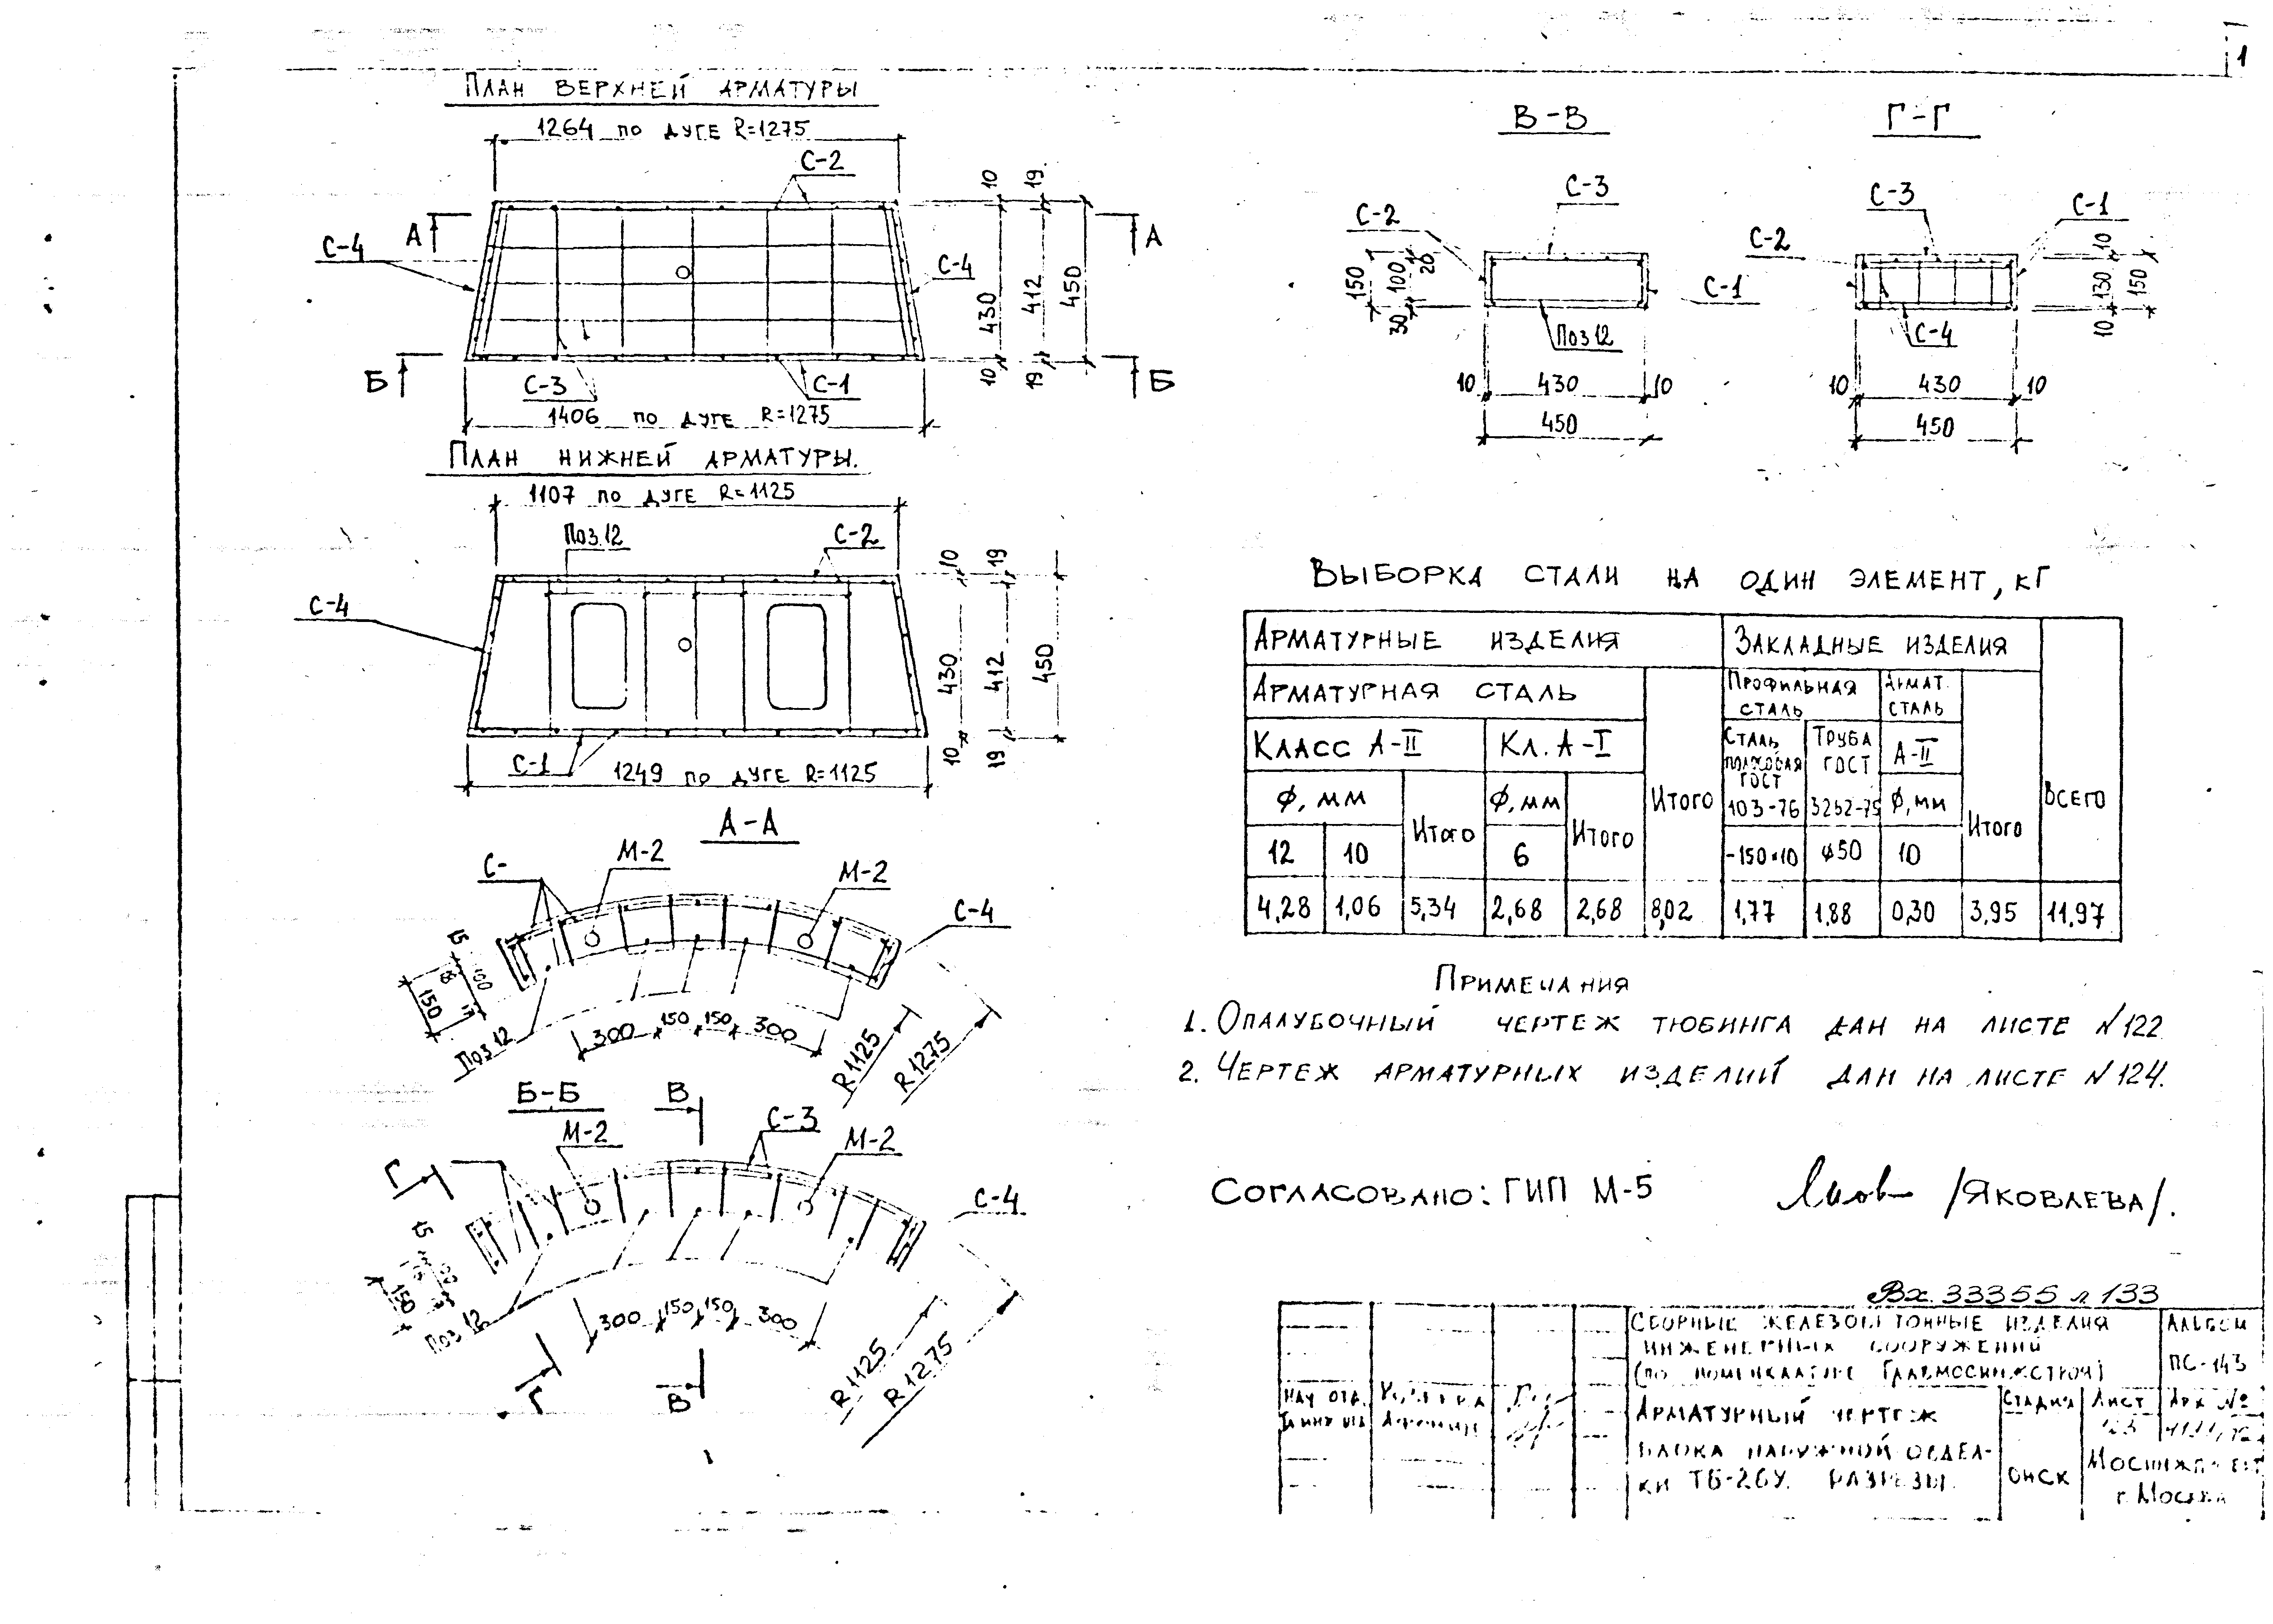 1
План верхней арматуры
1264 по дуге R=1275
С-2
А
А
С-4
С-4
10
19
430
412
450
10
19
Б
Б
С-3
С-1
1406 по дуге R=1275
План нижней арматуры.
1107 по дуге R=1125
Поз.12
С-2
С-4
10
19
430
412
450
10
19
С-1
1249 по дуге R=1125
А-А
С-
М-2
М-2
С-4
15
100
150
Поз 12
300
150
150
300
R1125
R1275
Б-Б
В
М-2
С-3
М-2
Г
С-4
15
150
Поз 12
300
150
150
300
R1125
R1275
Г
В
В-В
С-3
С-2
150
100
20
30
С-1
Поз12
10
430
10
450
Г-Г
С-3
С-1
С-2
10
130
150
10
С-4
10
430
10
450
Выборка стали на один элемент, кг
Арматурные изделия
Закладные изделия
Всего
Арматурная сталь
Итого
Профильная сталь
Армат. сталь
Итого
Класс А-II
Кл. А-I
Сталь полосовая ГОСТ 103-76
Труба ГОСТ 3262-75
А-II
ϕ, мм
Итого
ϕ, мм
Итого
ϕ, мм
12
10
6
-150×10
ϕ50
10
4,28 1,06 5,34 2,68 2,68 8,02 1,77 1,88 0,30 3,95 11,97
Примечания
1. Опалубочный чертеж тюбинга дан на листе №122
2. Чертеж арматурных изделий дан на листе №124.
Согласовано: ГИП М-5 /Яковлева/.
Вх. 33355 л 133
Сборные железобетонные изделия
инженерных сооружений
(по номенклатуре Главмосинжстроя)
Альбом
ПС-143
Нач отд.
Арматурный чертеж
блока наружной отдел-
ки ТБ-26У. Разрезы.
Стадия
Лист
Арх №
ОНСК
Мосинжпроект
г. Москва